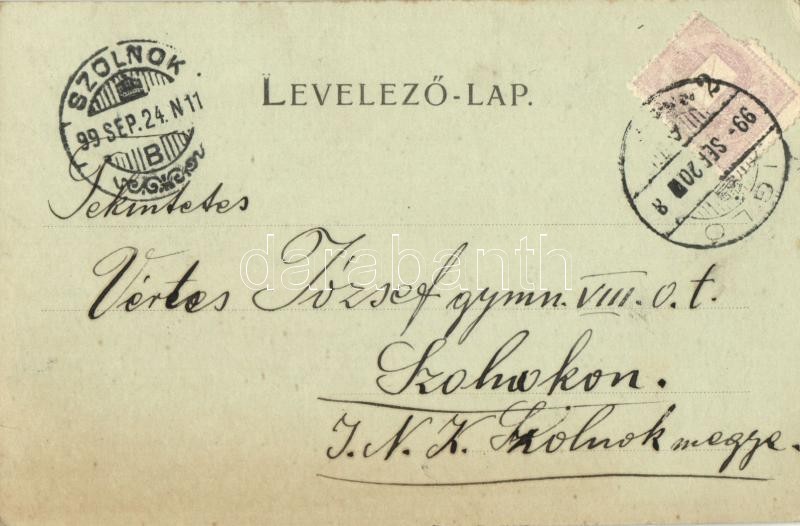 SZOLNOK
99 SEP. 24. N 11
B
LEVELEZŐ-LAP.
IGLÓ
99 - SEP 20
8
Tekintetes
darabanth
Vértes József gymn. VIII. o. t.
Szolnokon.
J. N. K. Szolnok megye.